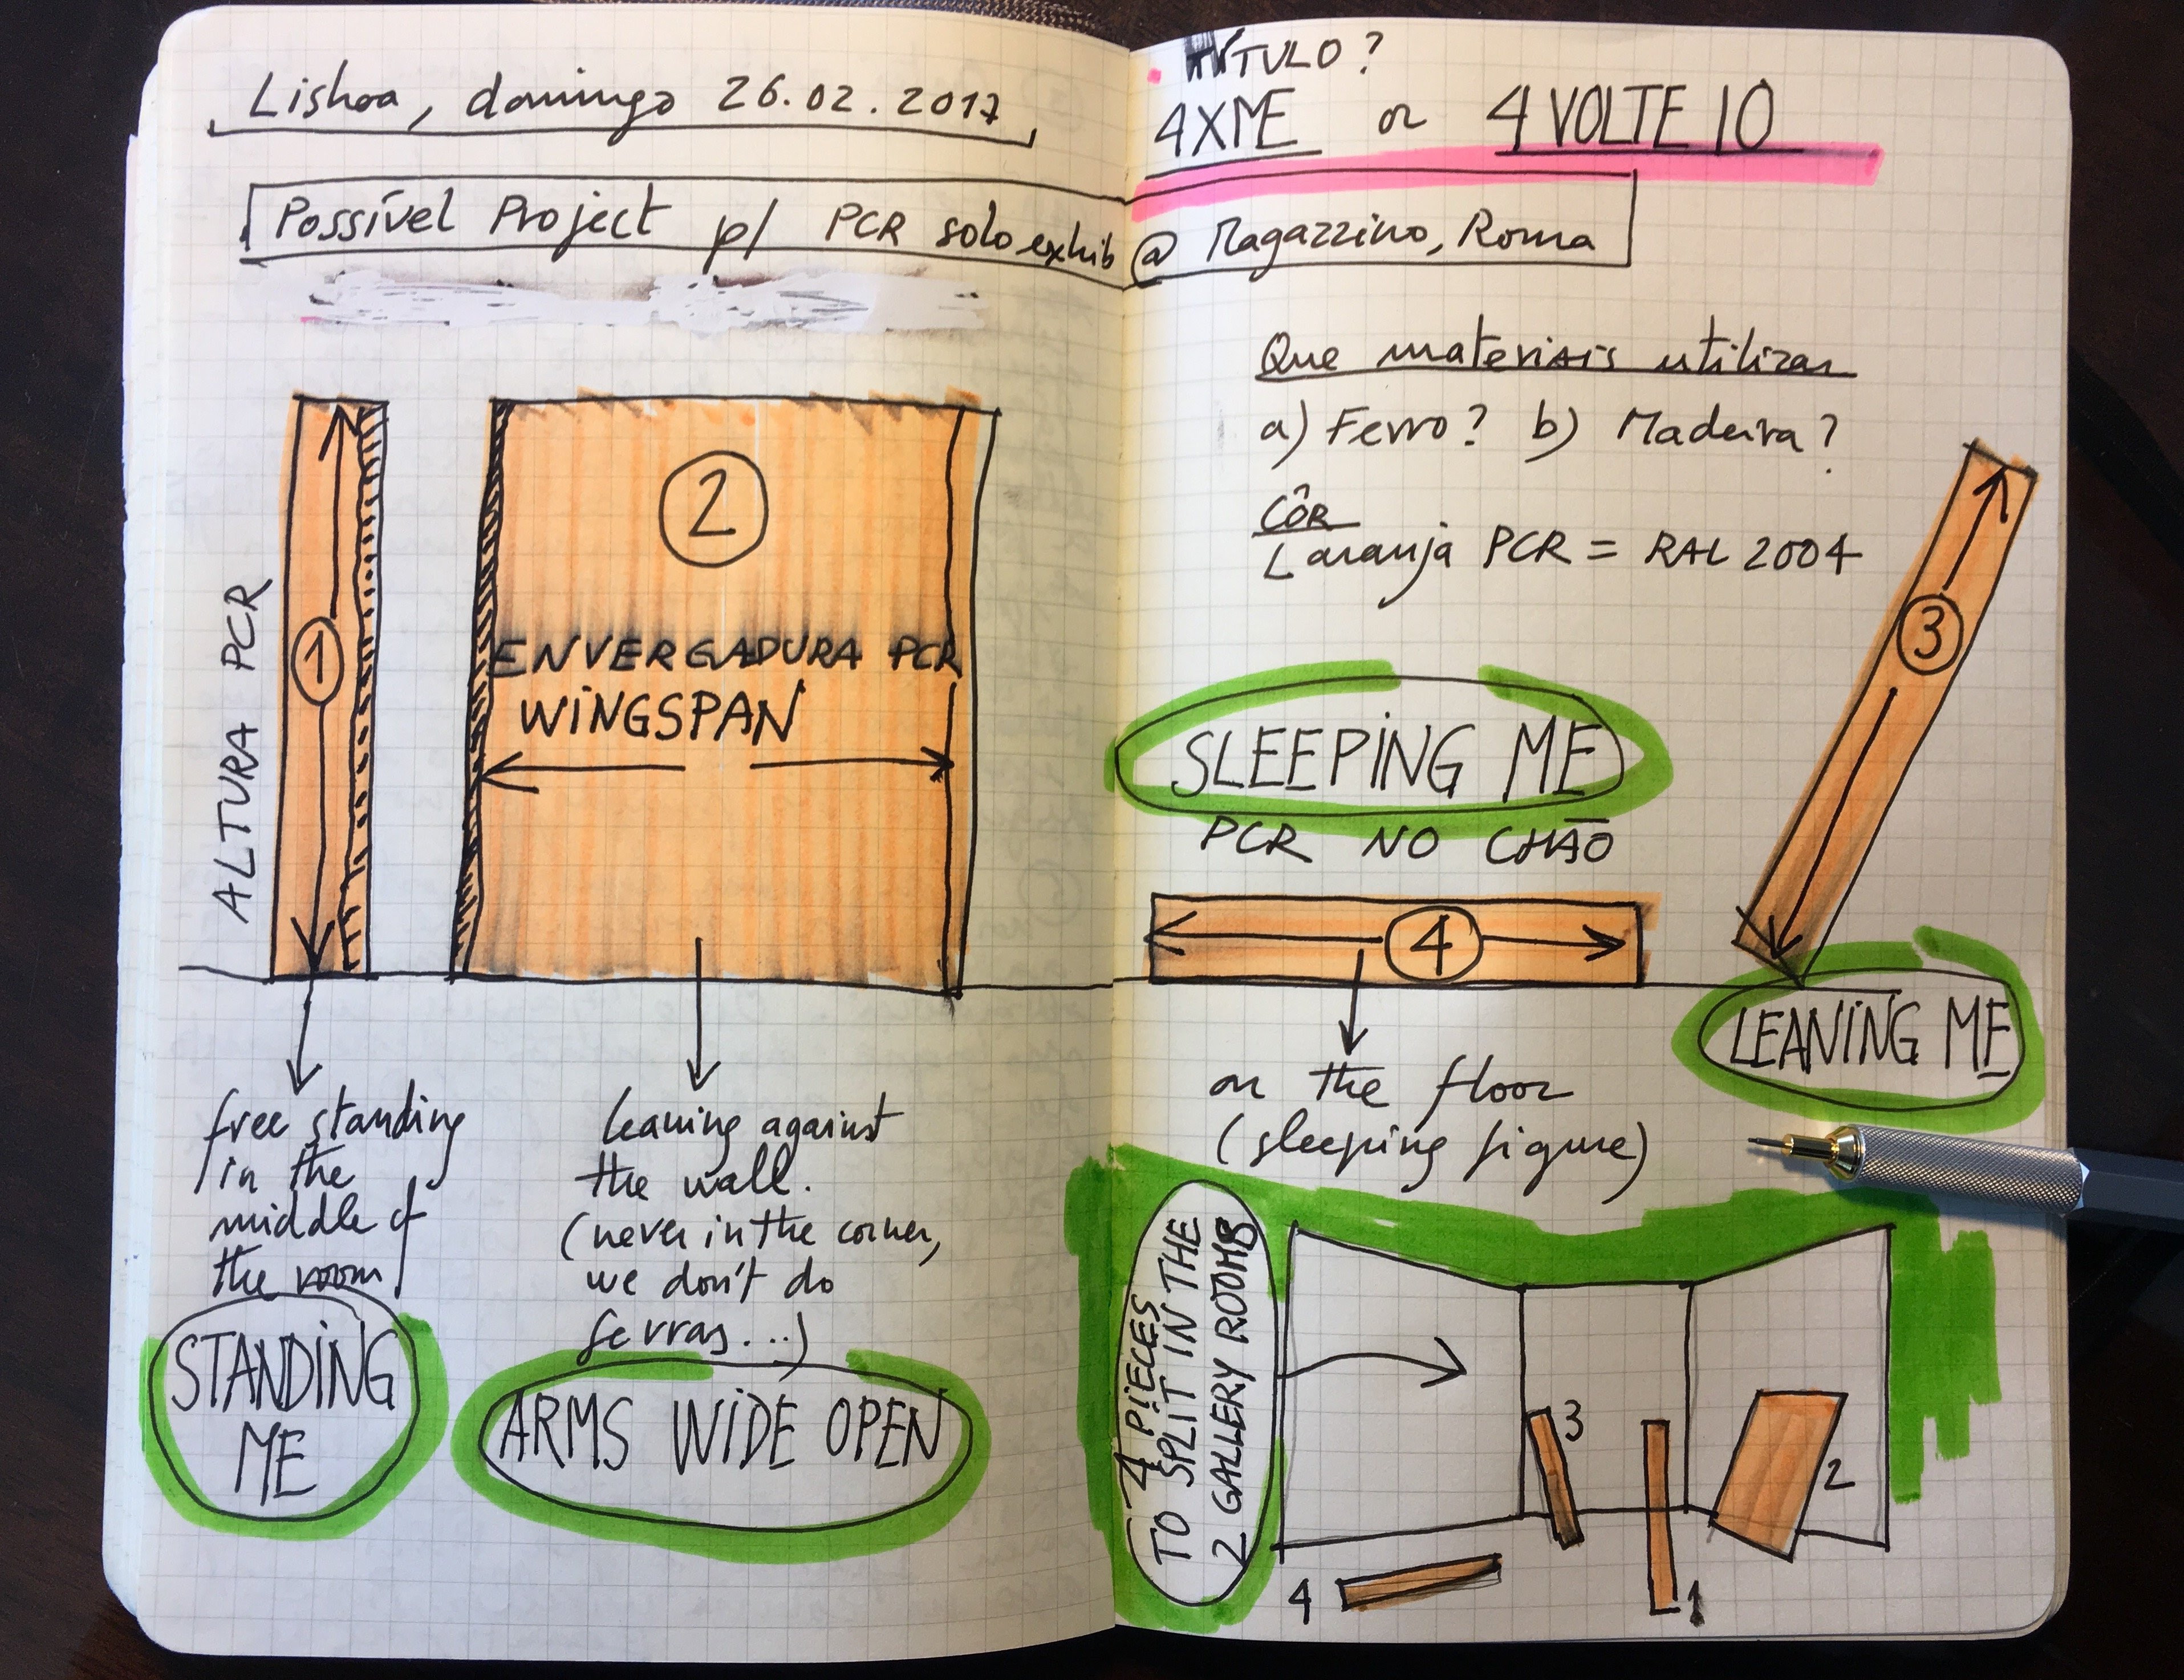 Lisboa, domingo 26.02.2017
Possível Project p/ PCR solo exhib @ Magazzino, Roma
ALTURA PCR
1
2
ENVERGADURA PCR
WINGSPAN
free standing
in the
middle of
the room
STANDING
ME
leaning against
the wall.
(never in the corner,
we don't do
Serras...)
ARMS WIDE OPEN
TÍTULO?
4XME or 4 VOLTE IO
Que materiais utilizar
a) Ferro? b) Madeira?
CÔR
Laranja PCR = RAL 2004
3
SLEEPING ME
PCR NO CHÃO
4
LEANING ME
on the floor
(sleeping figure)
4 PIECES
TO SPLIT IN THE
2 GALLERY ROOMS
3
2
4
1